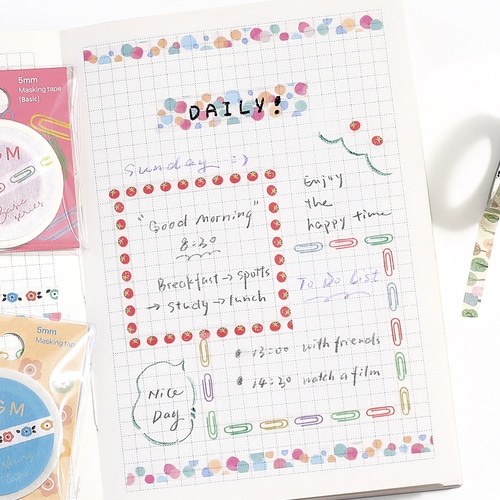 5mm
Masking tape
(Basic)
GM
Basic
series
5mm
Masking tape
GM
DAILY!
Sunday :)
"Good Morning"
8:30
Breakfast → spotts
→ study → lunch
Enjoy
the
happy time
To Do List
13:00 with friends
14:30 watch a film
Nice
Day